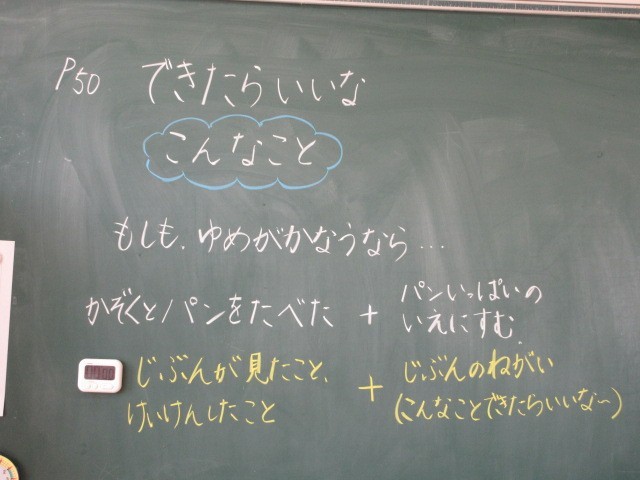 P50 できたらいいな
こんなこと
もしも、ゆめがかなうなら…
かぞくとパンをたべた + パンいっぱいの
いえにすむ。
じぶんが見たこと、
けいけんしたこと
+
じぶんのねがい
(こんなことできたらいいな～)